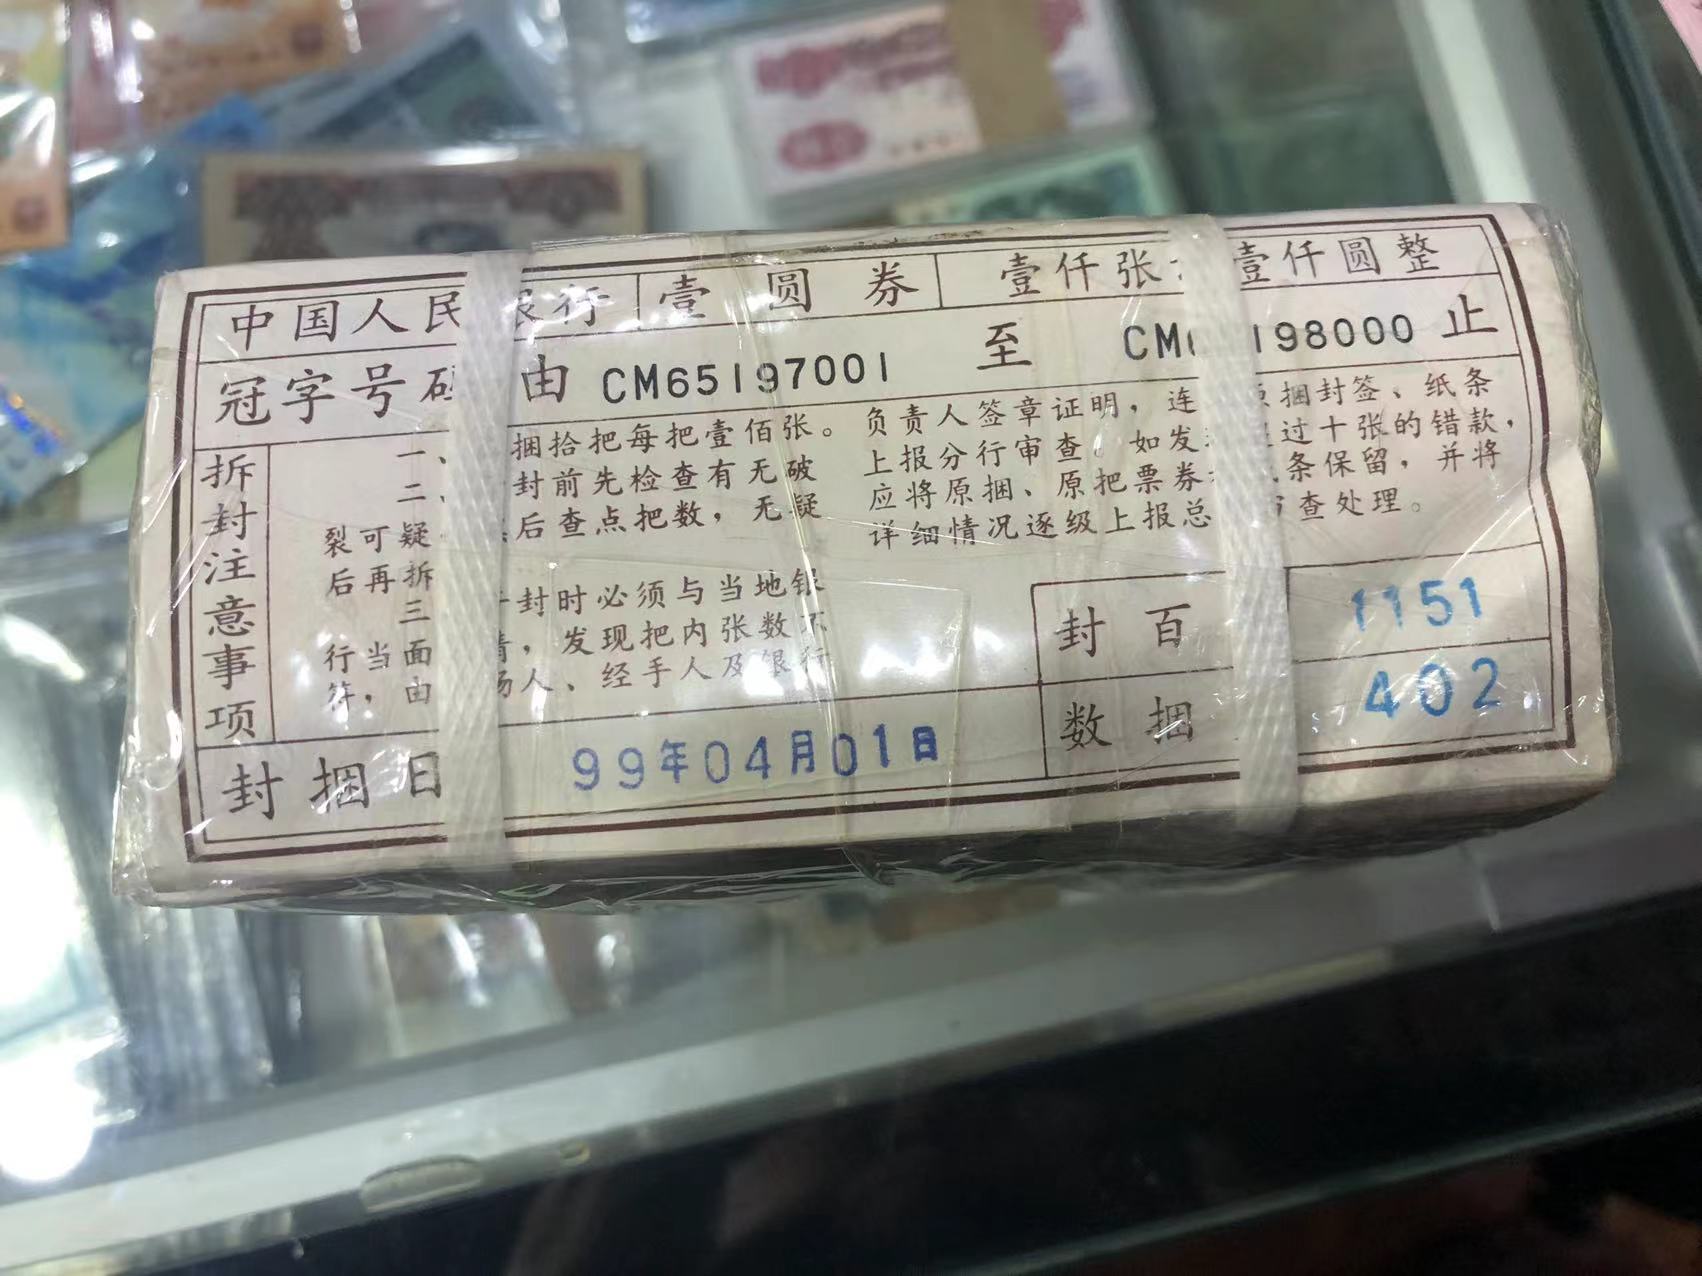 中国人民银行 壹圆券 壹仟张 壹仟圆整
冠字号码 由 CM65197001 至 CM 198000 止
拆封注意事项
一、 捆拾把每把壹佰张。
二、 封前先检查有无破
裂可疑 后查点把数，无疑
后再拆
三 封时必须与当地银
行当面 情，发现把内张数不
符，由 场人、经手人及银行
负责人签章证明，连 原捆封签、纸条
上报分行审查。如发 过十张的错款，
应将原捆、原把票券 条保留，并将
详细情况逐级上报总 审查处理。
封捆日 99年04月01日
封百 1151
数捆 402